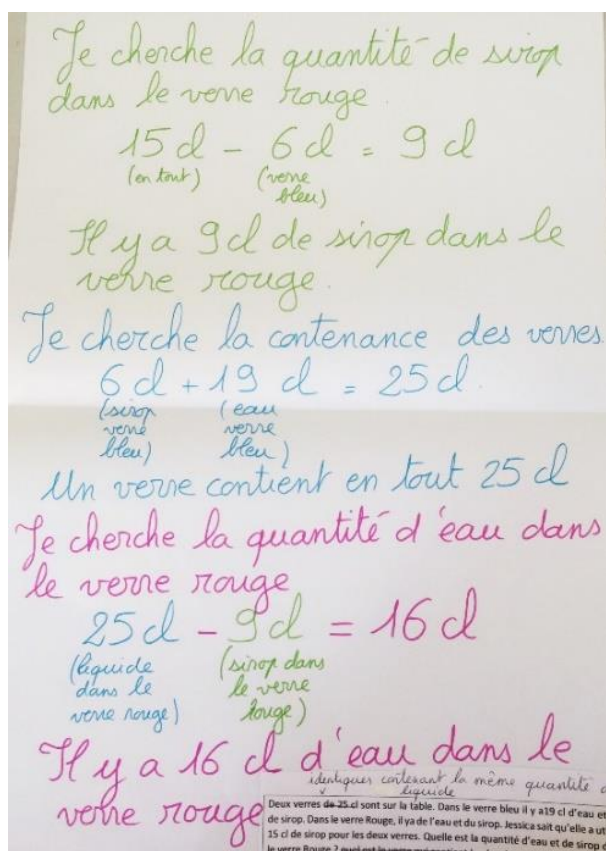 Je cherche la quantité de sirop
dans le verre rouge
15 cl - 6 cl = 9 cl
(en tout) (verre
bleu)
Il y a 9 cl de sirop dans le
verre rouge.
Je cherche la contenance des verres.
6 cl + 19 cl = 25 cl.
(sirop (eau
verre verre
bleu) bleu)
Un verre contient en tout 25 cl
Je cherche la quantité d'eau dans
le verre rouge
25 cl - 9 cl = 16 cl
(liquide (sirop dans
dans le le verre
verre rouge) rouge)
Il y a 16 cl d'eau dans le
verre rouge
identiques contenant la même quantité
liquide
Deux verres de 25 cl sont sur la table. Dans le verre bleu il y a19 cl d'eau et
de sirop. Dans le verre Rouge, il ya de l'eau et du sirop. Jessica sait qu'elle a ut
15 cl de sirop pour les deux verres. Quelle est la quantité d'eau et de sirop d
le verre Rouge ? quel est le verre qui contient